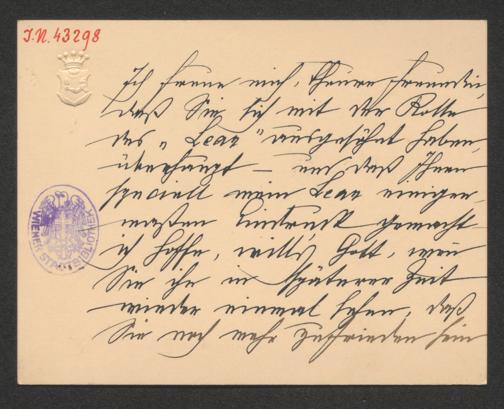 I.N. 43298
Ich freue mich, theure Freundin,
daß Sie sich mit der Rolle
des „Lear“ ausgesöhnt haben,
überhaupt – und daß Ihnen
speciell mein Lear einiger-
maßen Eindruck gemacht
ich hoffe, will's Gott, wenn
Sie ihn in späterer Zeit
wieder einmal sehen, daß
Sie noch mehr zufrieden sein
WIENER STADTBIBLIOTHEK